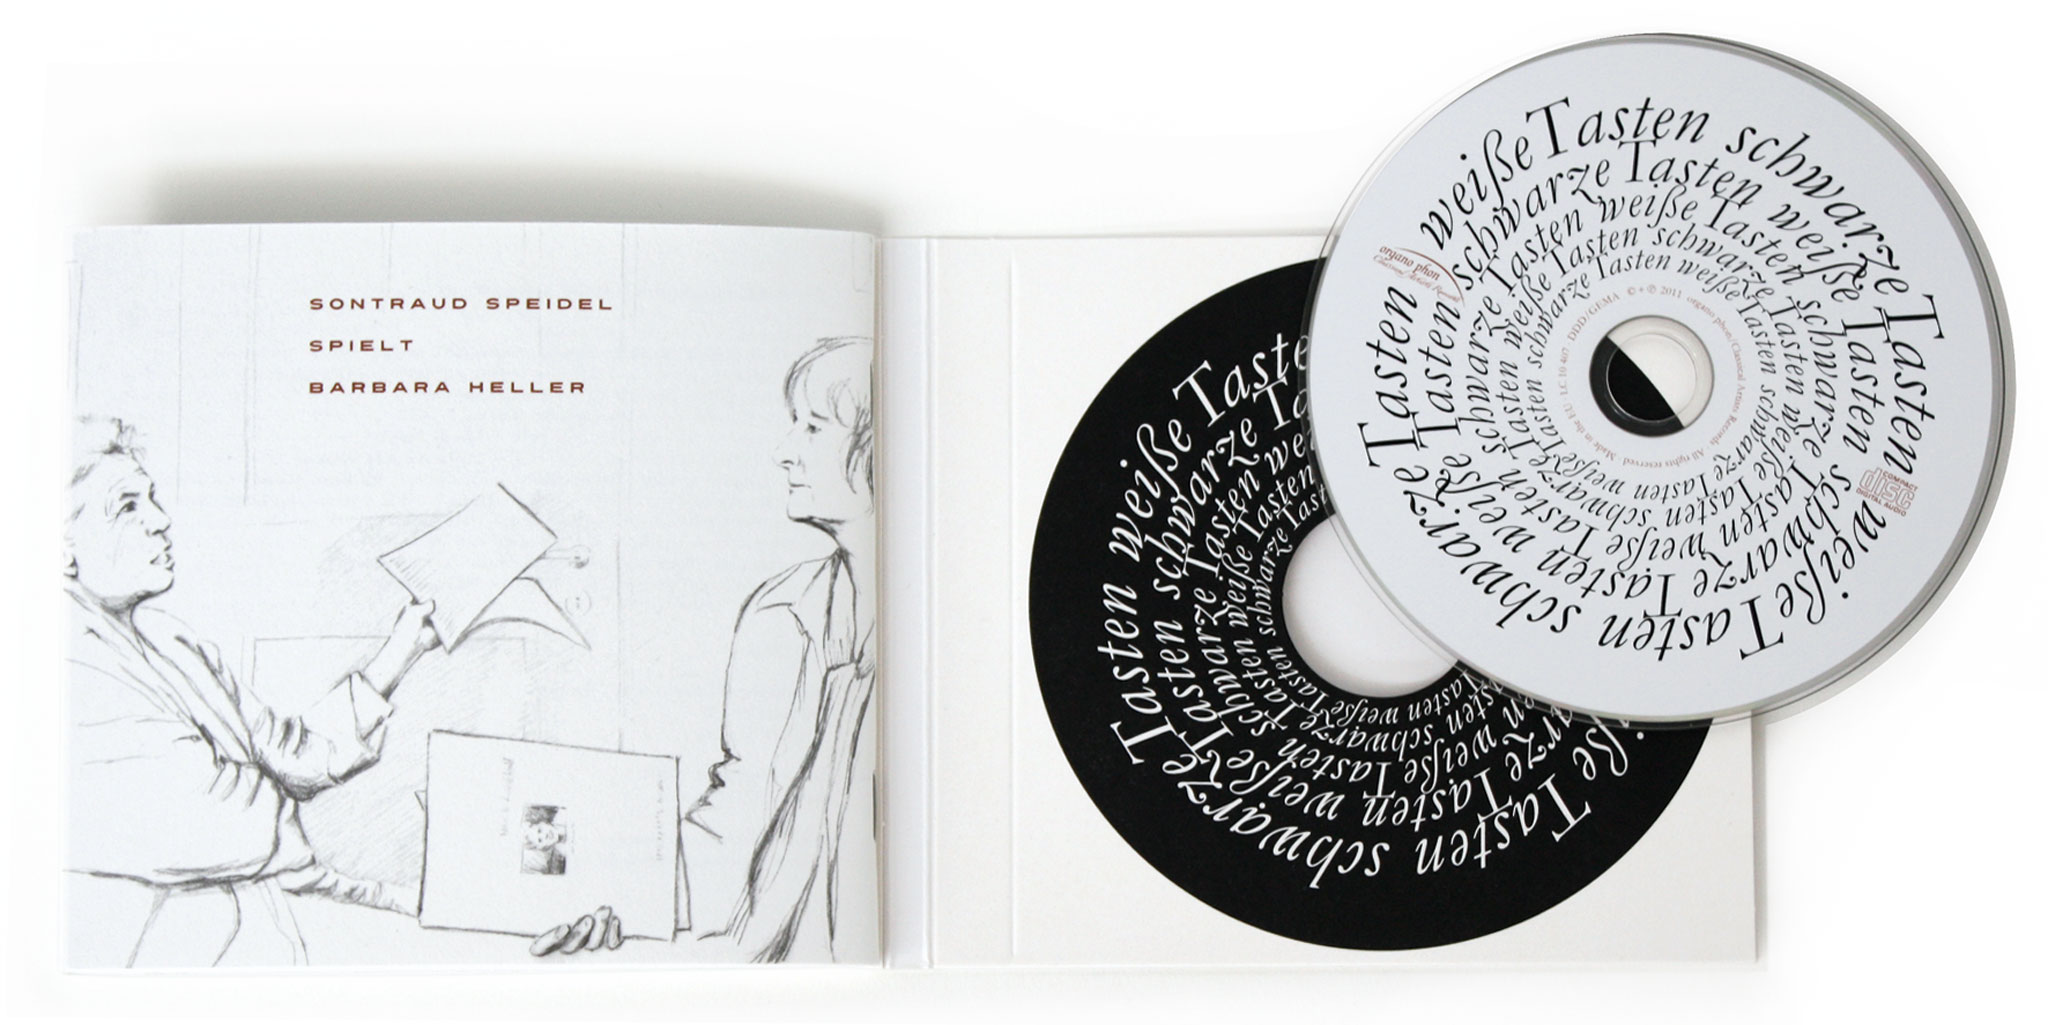 SONTRAUD SPEIDEL
SPIELT
BARBARA HELLER
weiße Tasten schwarze Tasten weiße Tasten schwarze Tasten
schwarze Tasten weiße Tasten schwarze Tasten weiße Tasten
schwarze Tasten weiße Tasten schwarze Tasten weiße Tasten
weiße Tasten schwarze Tasten weiße Tasten schwarze Tasten
schwarze Tasten weiße Tasten schwarze Tasten weiße Tasten
organo phon
Classical Artists Records
© + ℗ 2011 organo phon/Classical Artists Records
All rights reserved · Made in the EU · LC 10 407 · DDD/GEMA
COMPACT
disc
DIGITAL AUDIO
weiße Taste
schwarze Ta
Tasten we
weiße Tasten
schwarze Tas
Tasten schwarze Tasten